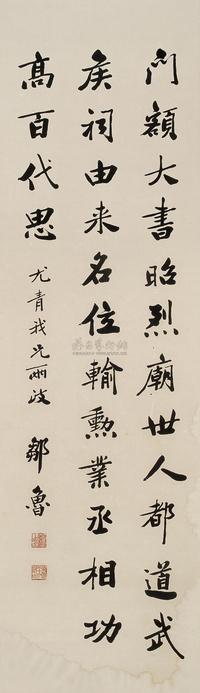 門額大書昭烈廟世人都道武
矦祠由来名位輸勲業丞相功
高百代思
尤青我兄兩政
鄒魯